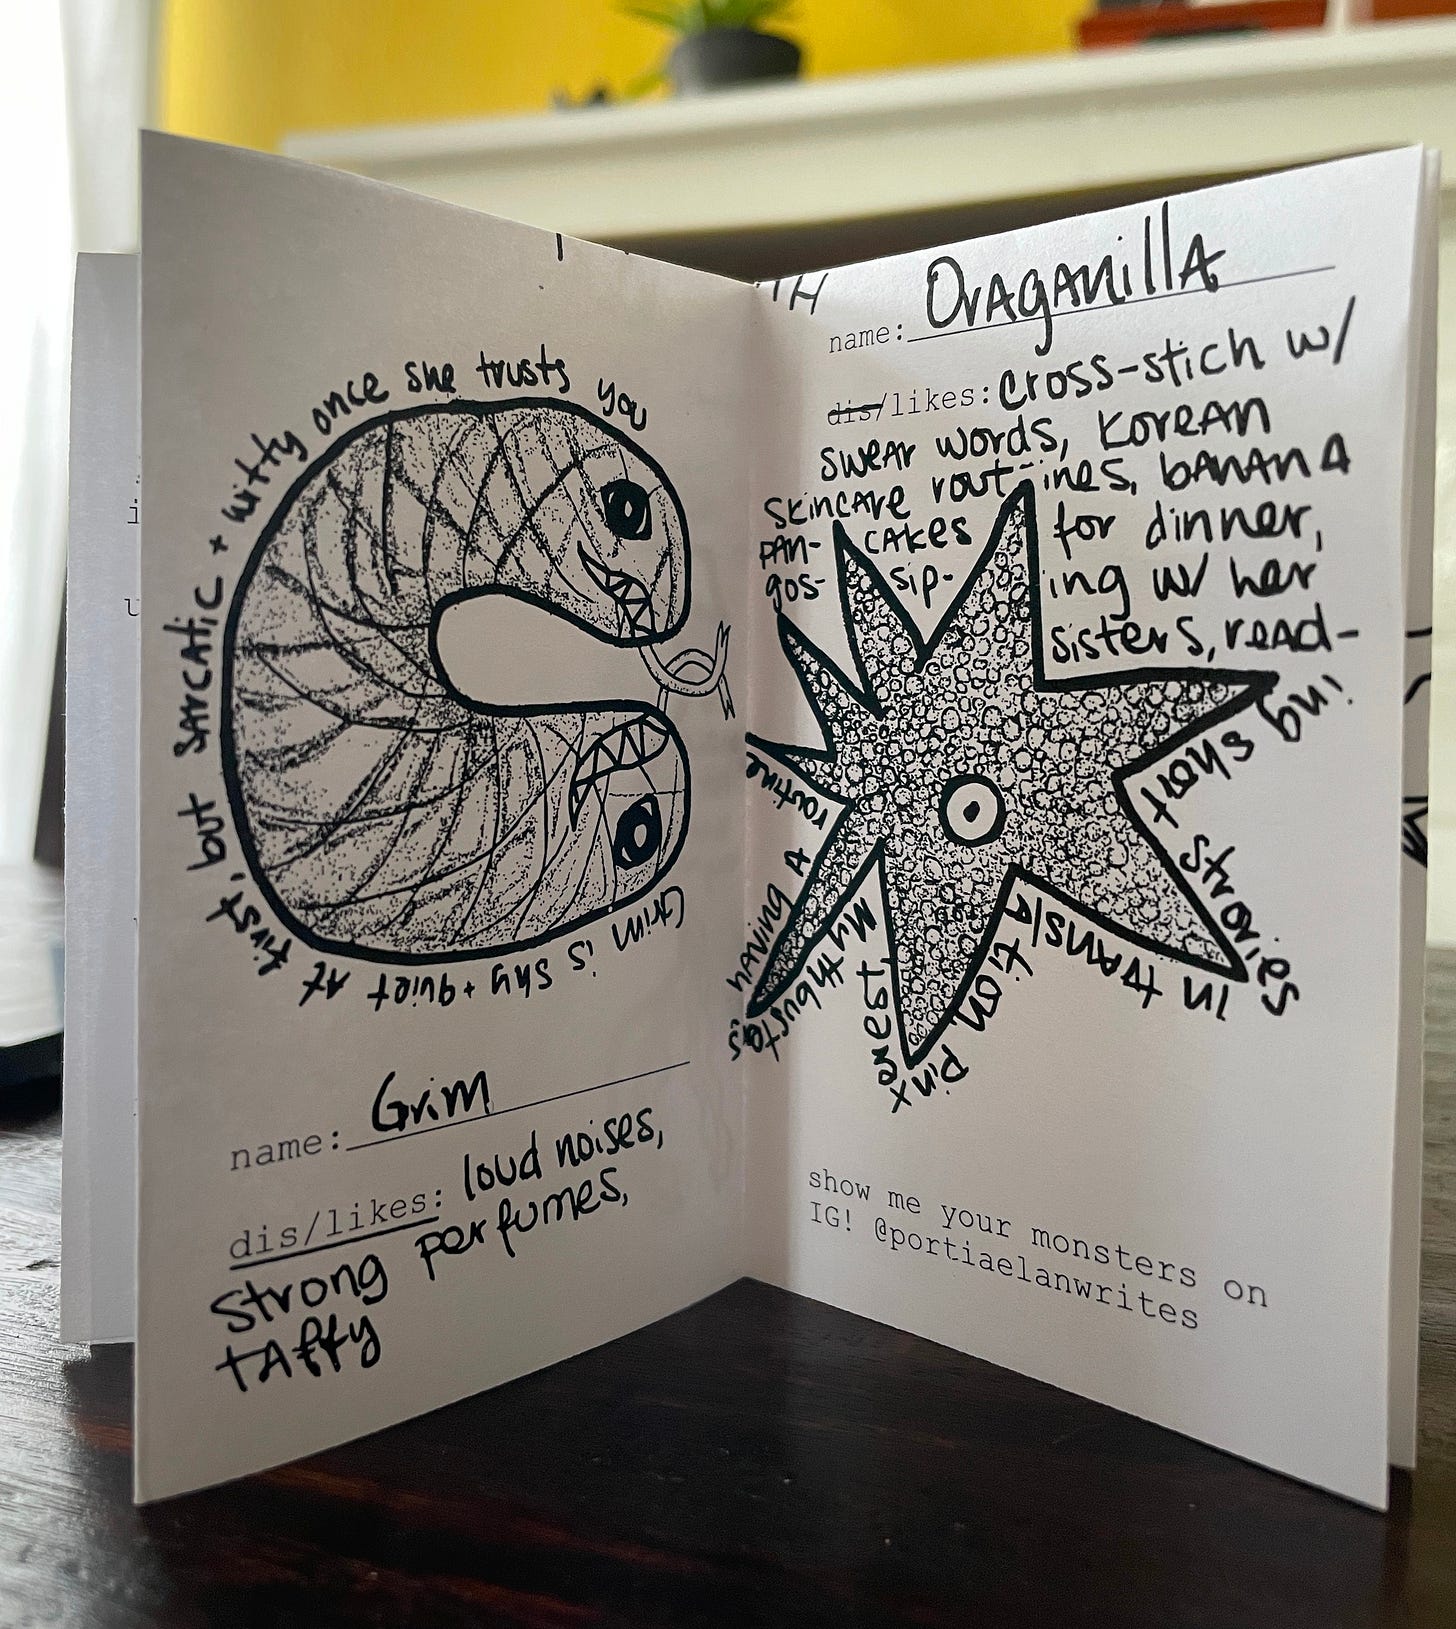 Grim is shy + quiet at first, but sarcatic + witty once she trusts you
name: Grim
dis/likes: loud noises,
strong perfumes,
taffy
TH
name: Ovaganilla
dis/likes: cross-stich w/
swear words, Korean
skincare routines, banana
pan-cakes for dinner,
gos-sip-ing w/ her
sisters, read-
ing short stories
in translation
pinxterest
Mythbusters
having a routine
show me your monsters on
IG! @portiaelanwrites